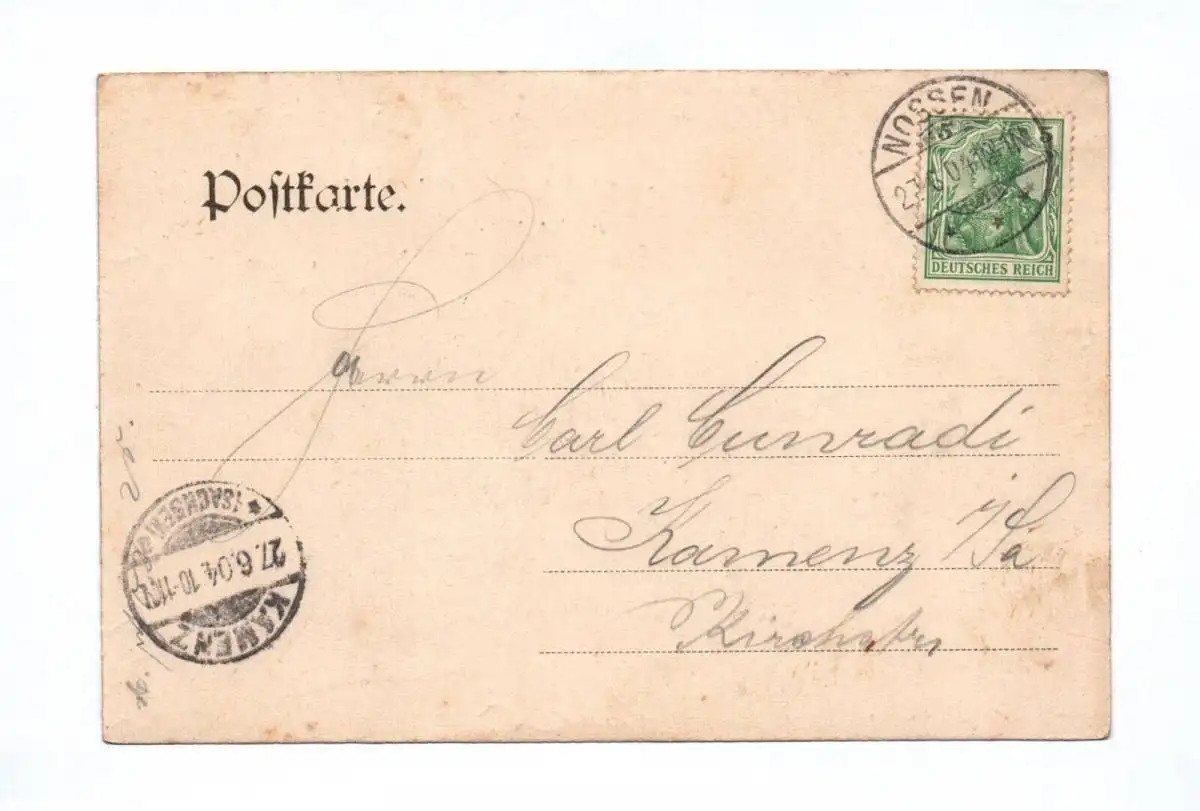 Postkarte.
NOSSEN
5 5
DEUTSCHES REICH
Herrn
Carl Cunradi
Kamenz i/Sa
Kirchstr
* (SACHSEN)
27.6.04. 10-11
KAMENZ